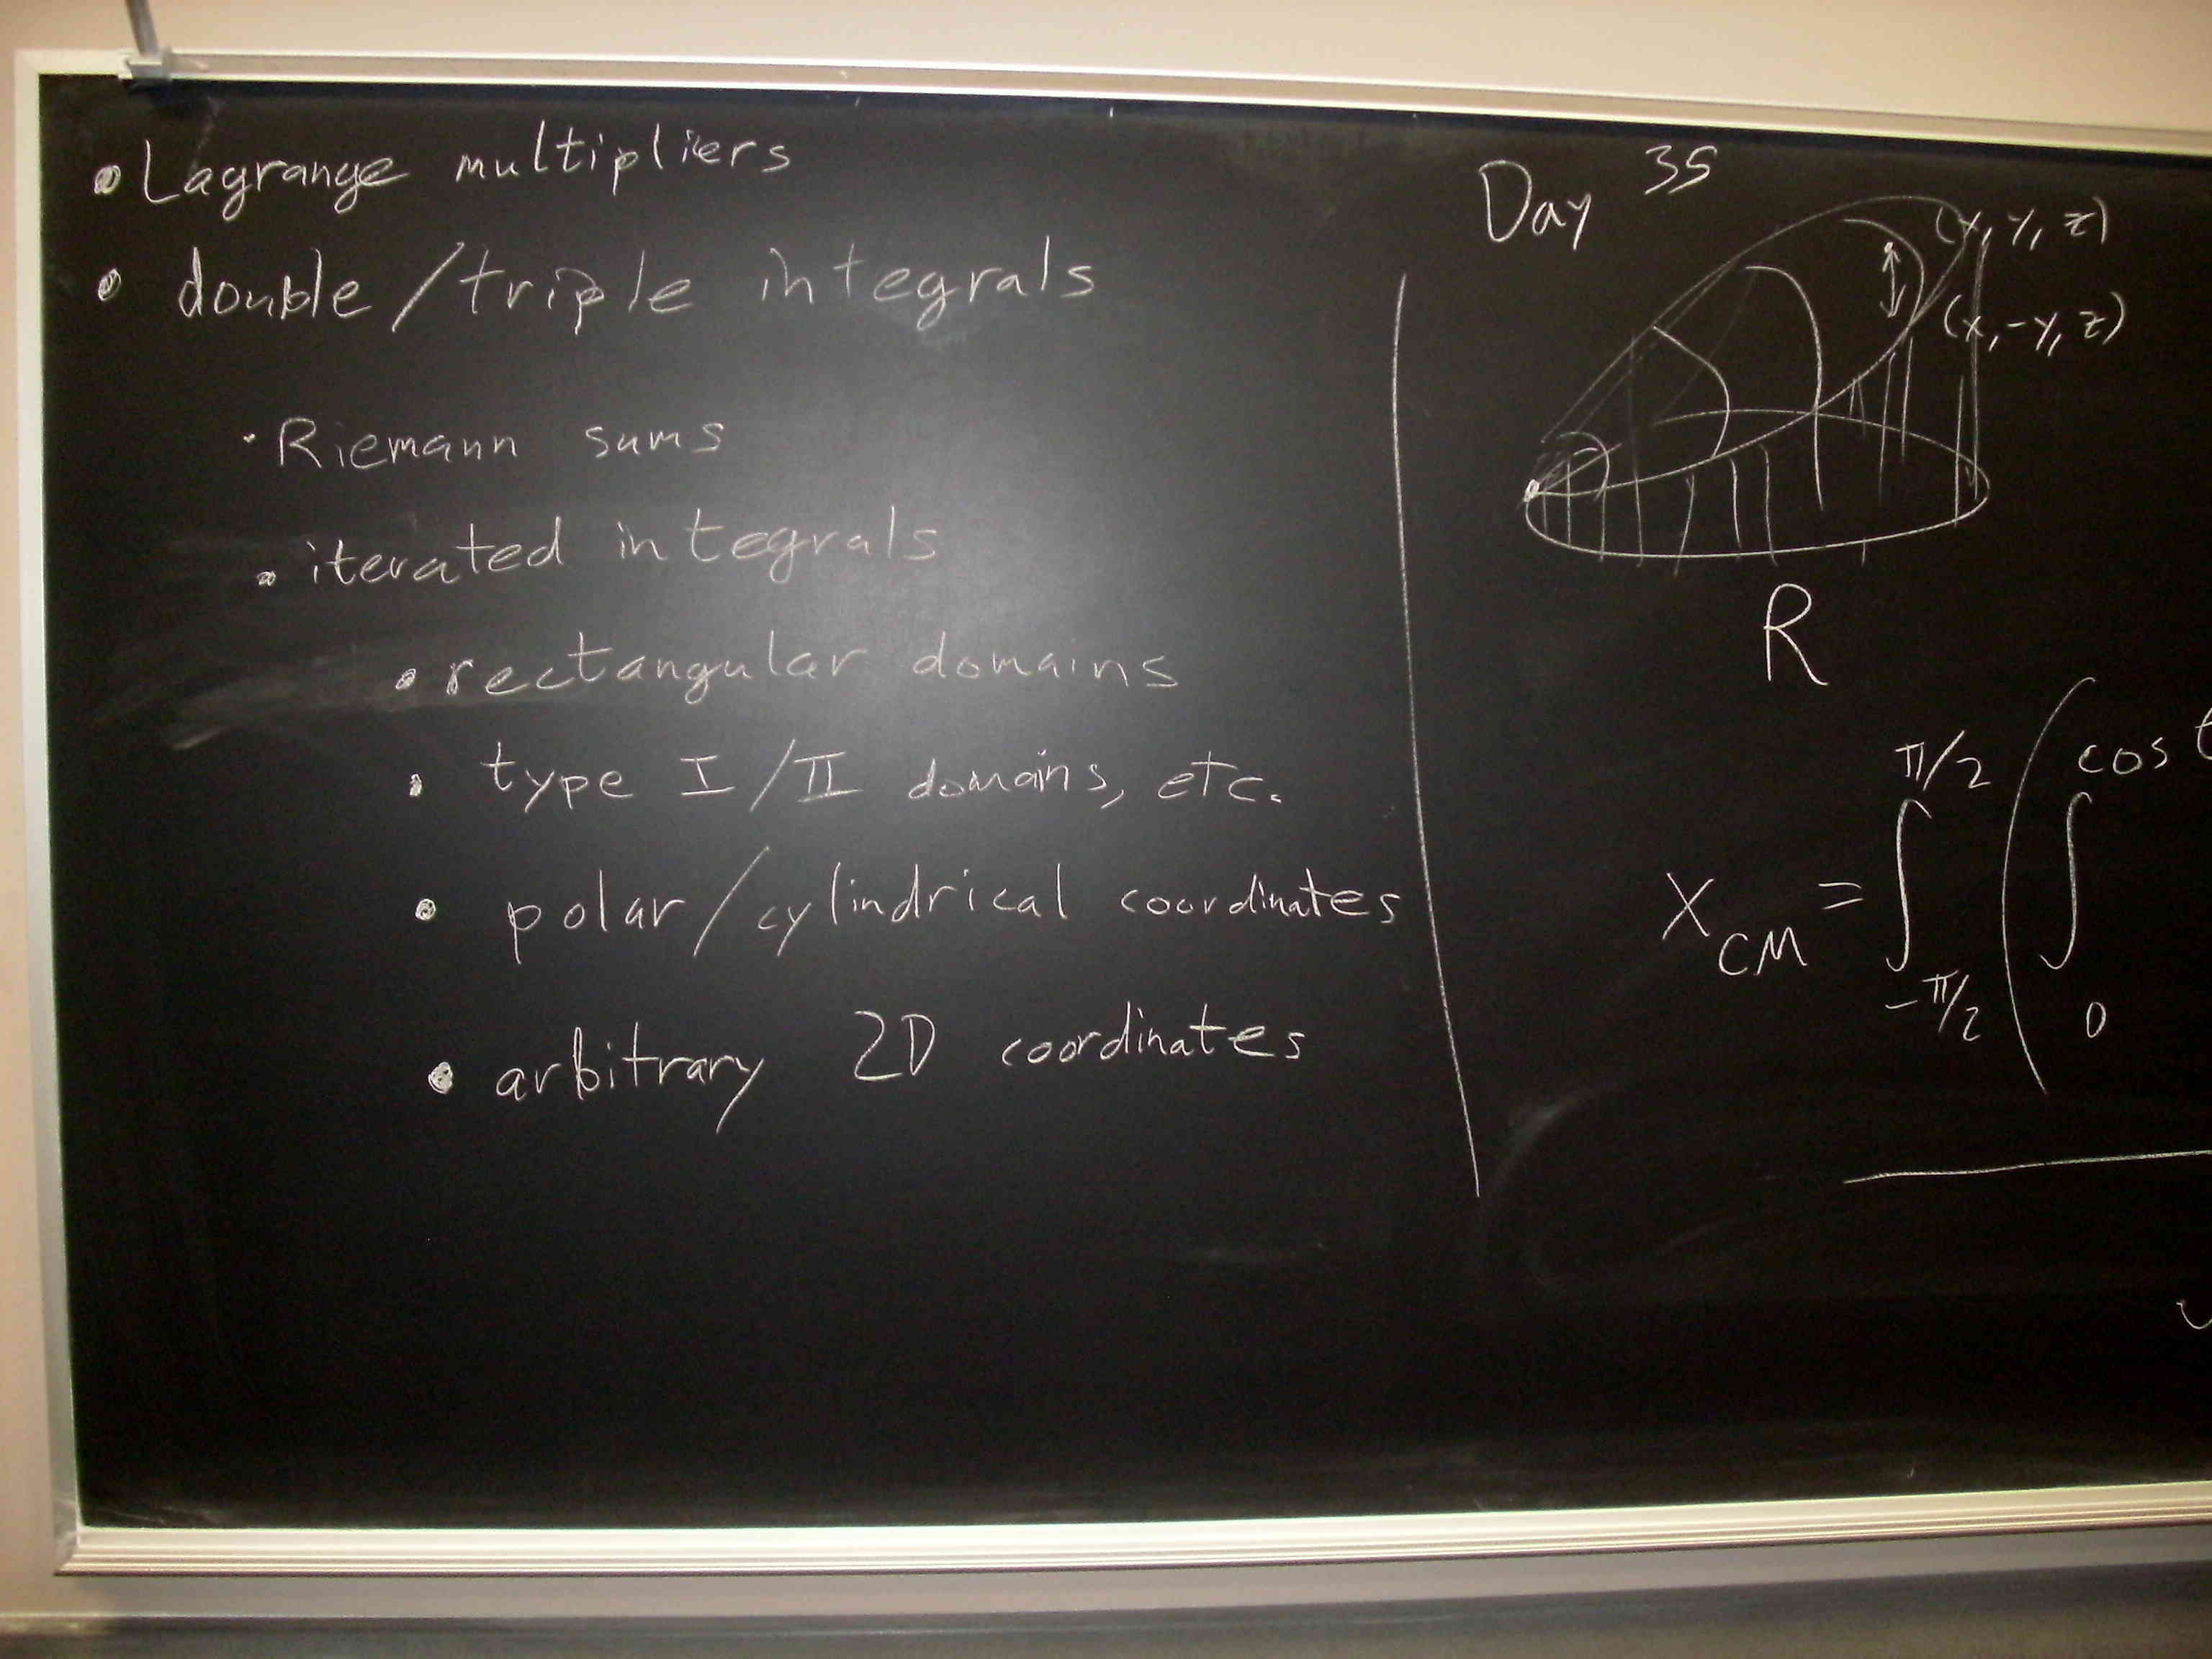 • Lagrange multipliers
• double/triple integrals
• Riemann sums
• iterated integrals
• rectangular domains
• type I/II domains, etc.
• polar/cylindrical coordinates
• arbitrary 2D coordinates
Day 35
(x, y, z)
(x, -y, z)
R
π/2
cos
X_CM = ∫ ( ∫
-π/2
0